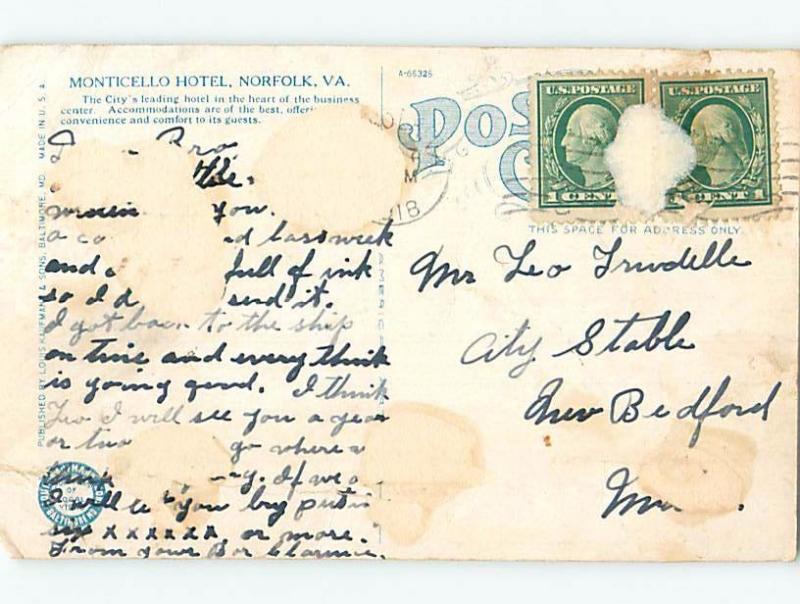 MONTICELLO HOTEL, NORFOLK, VA.
The City's leading hotel in the heart of the business
center. Accommodations are of the best, offeri
convenience and comfort to its guests.
A-66325
POS
MADE IN U. S. A.
PUBLISHED BY LOUIS KAUFMANN & SONS, BALTIMORE, MD.
U.S. POSTAGE
1 CENT
U.S. POSTAGE
CENT 1
M
18
THIS SPACE FOR ADDRESS ONLY.
Bro
you.
a co d lass week
and full of ink
so I d send it.
I got back to the ship
on time and every think
is going good. I think
Leo I will see you a year
or two go where
y. If we
I will you by putti
six x x x x x x, or more.
From your Bor Clarence.
Mr Leo Trudelle
City Stable
New Bedford
Ma